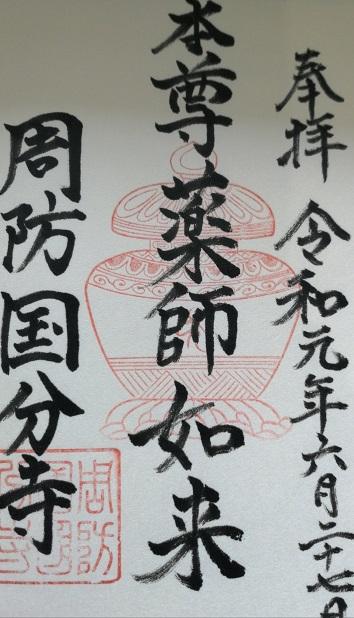 奉拝 令和元年六月二十七日
本尊薬師如来
周防国分寺